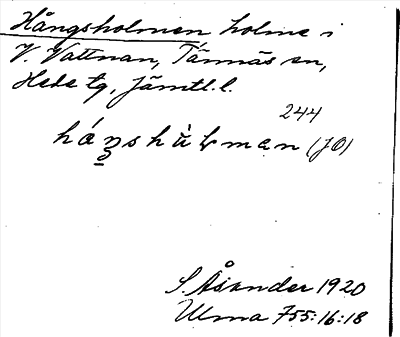 Hångsholmen holme i
V. Vattnan, Tännäs sn,
Hede tg, Jämtl.l.
244
(JO)
S. Åsander 1920
Ulma 755:16:18